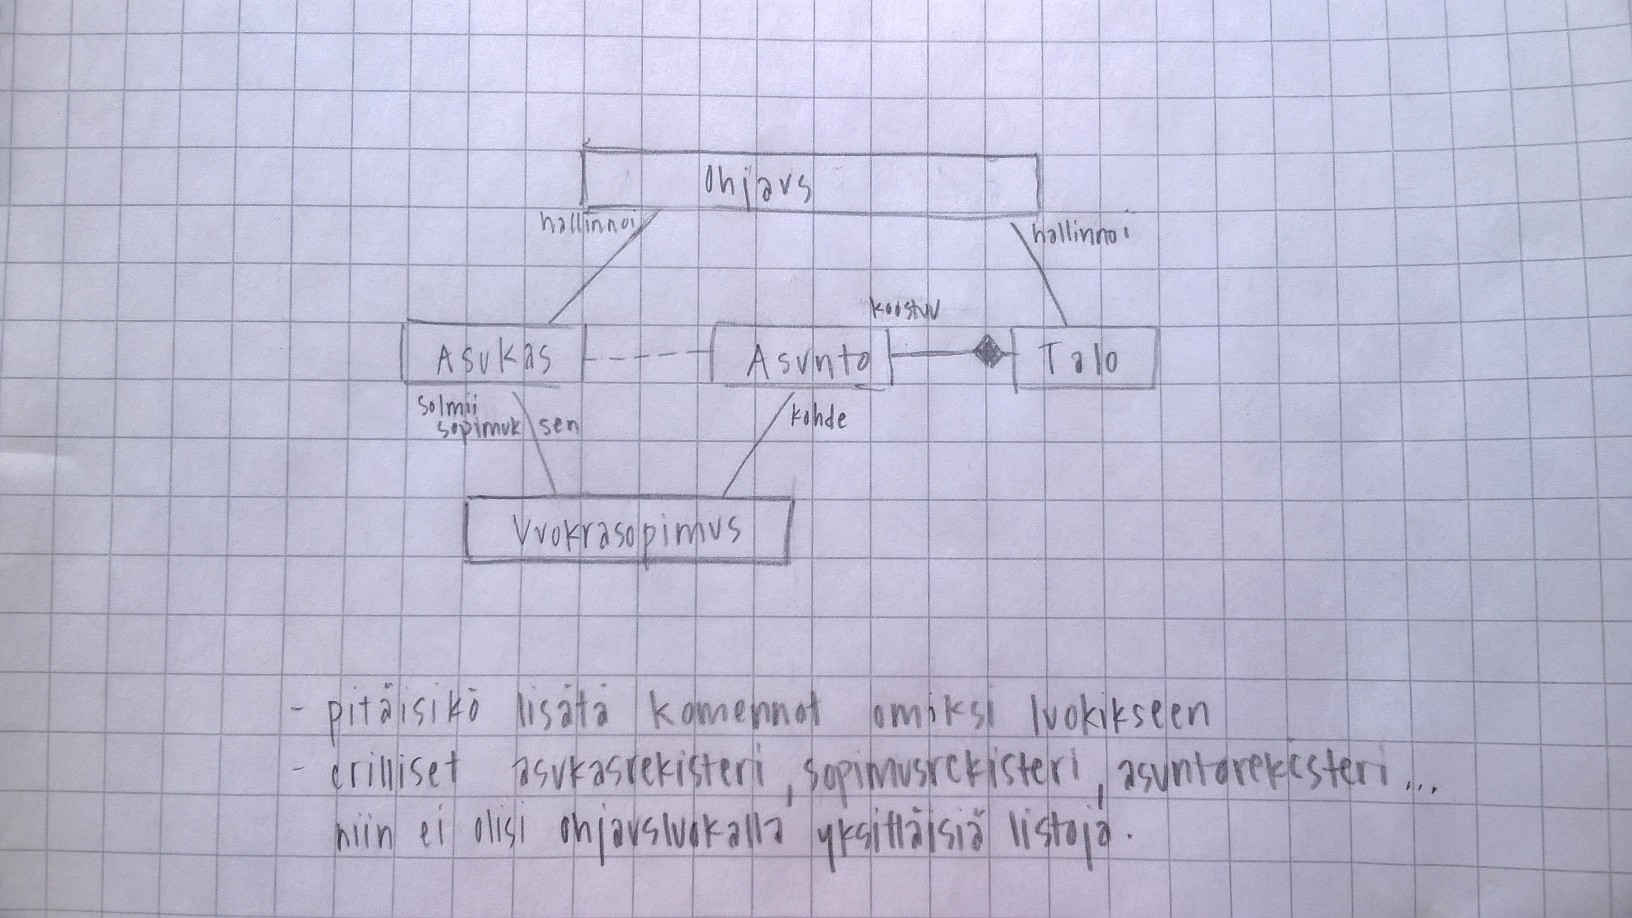 Ohjaus
hallinnoi
hallinnoi
koostuu
Asukas
Asunto
Talo
solmii
sopimuksen
kohde
Vuokrasopimus
- pitäisikö lisätä komennot omiksi luokikseen
- erilliset asukasrekisteri, sopimusrekisteri, asuntorekisteri...
niin ei olisi ohjausluokalla yksittäisiä listoja.